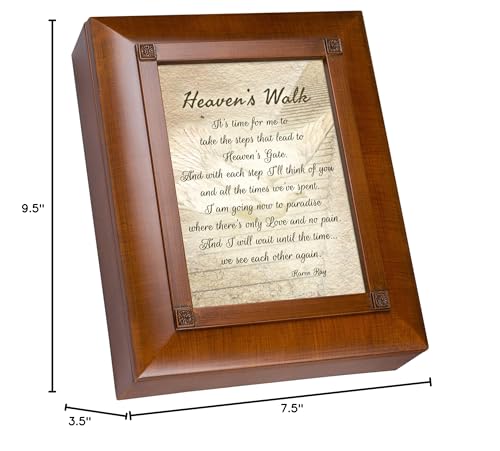 Heaven's Walk
It's time for me to
take the steps that lead to
Heaven's Gate.
And with each step I'll think of you
and all the times we've spent.
I am going now to paradise
where there's only Love and no pain.
And I will wait until the time...
we see each other again.
Karen Ray
9.5"
3.5"
7.5"